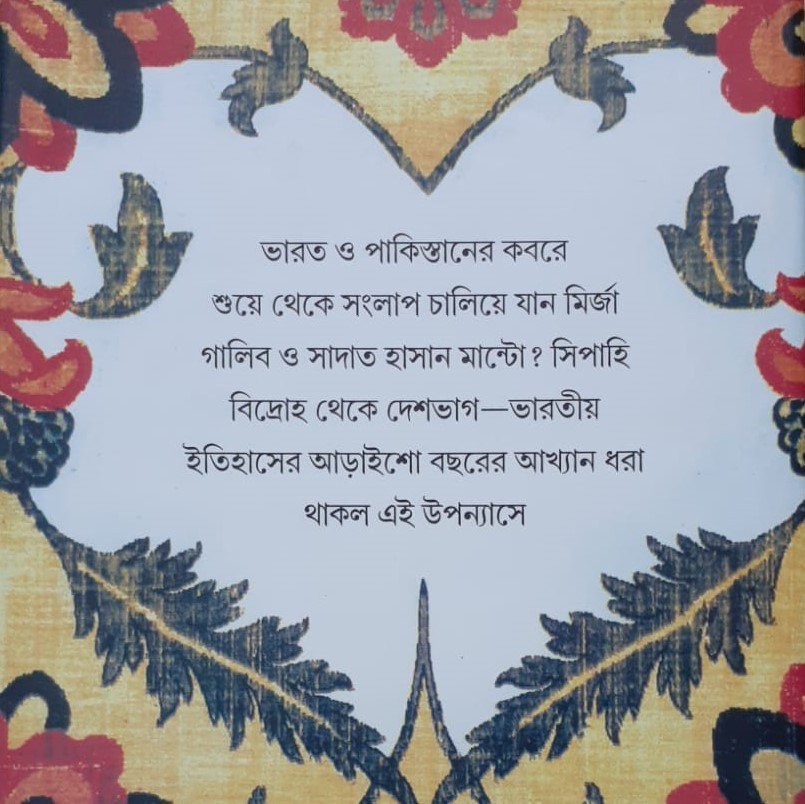 ভারত ও পাকিস্তানের কবরে
শুয়ে থেকে সংলাপ চালিয়ে যান মির্জা
গালিব ও সাদাত হাসান মান্টো? সিপাহি
বিদ্রোহ থেকে দেশভাগ—ভারতীয়
ইতিহাসের আড়াইশো বছরের আখ্যান ধরা
থাকল এই উপন্যাসে